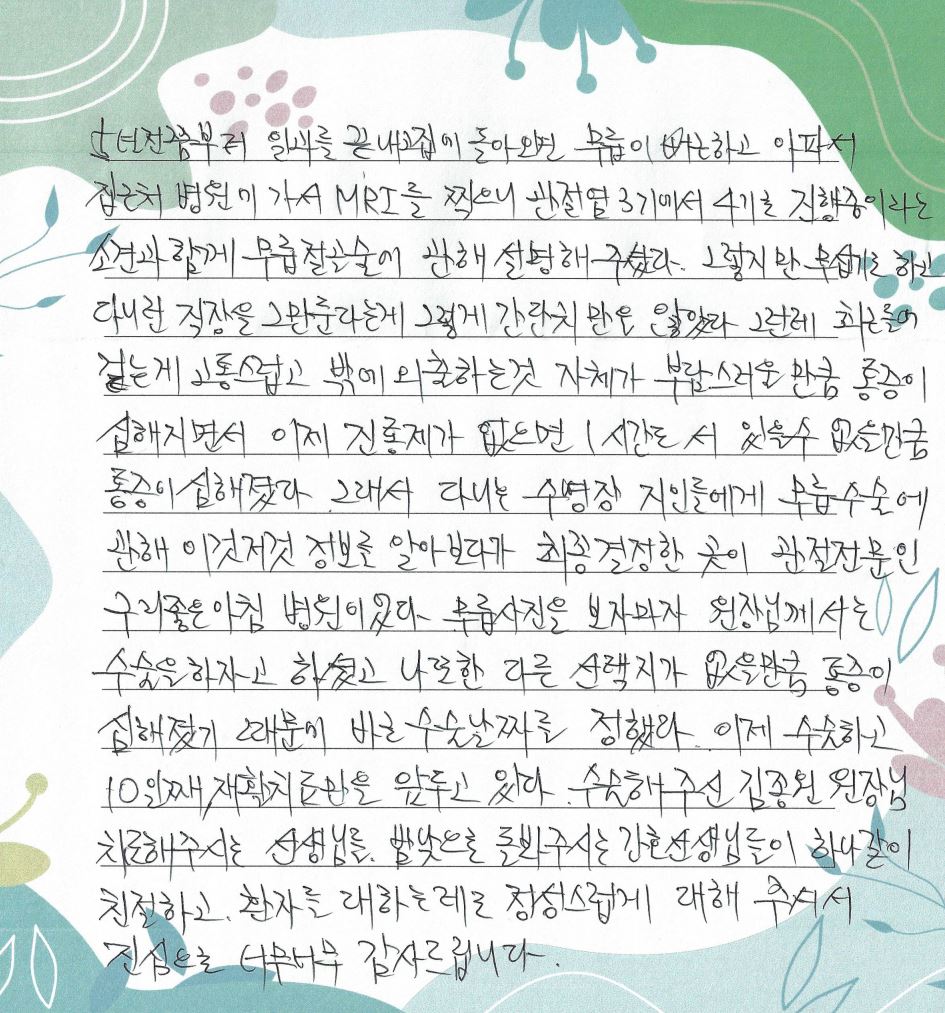 5년전쯤부터 일과를 끝내고집에 돌아오면 무릎이 뻐근하고 아파서
집근처 병원에 가서 MRI를 찍으니 관절염 3기에서 4기로 진행중이라는
소견과 함께 무릎절골술에 관해 설명해 주셨다. 그렇지만 무섭기도 하고
다니던 직장을 그만둔다는게 그렇게 간단치 만은 않았다 그런데 최근들어
걷는게 고통스럽고 밖에 외출하는것 자체가 부담스러울 만큼 통증이
심해지면서 이제 진통제가 없으면 1시간도 서 있을수 없을만큼
통증이 심해졌다. 그래서 다니는 수영장 지인들에게 무릎수술에
관해 이것저것 정보를 알아보다가 최종결정한 곳이 관절전문인
구리좋은아침 병원이었다. 무릎사진을 보자마자 원장님께서는
수술을하자고 하셨고 나또한 다른 선택지가 없을만큼 통증이
심해졌기 때문에 바로 수술날짜를 정했다. 이제 수술하고
10일째, 재활치료만을 앞두고 있다. 수술해주신 김종원 원장님
치료해주시는 선생님들, 밤낮으로 돌봐주시는 간호선생님들이 하나같이
친절하고, 환자를 대하는데로 정성스럽게 대해 주셔서
진심으로 너무너무 감사드립니다.